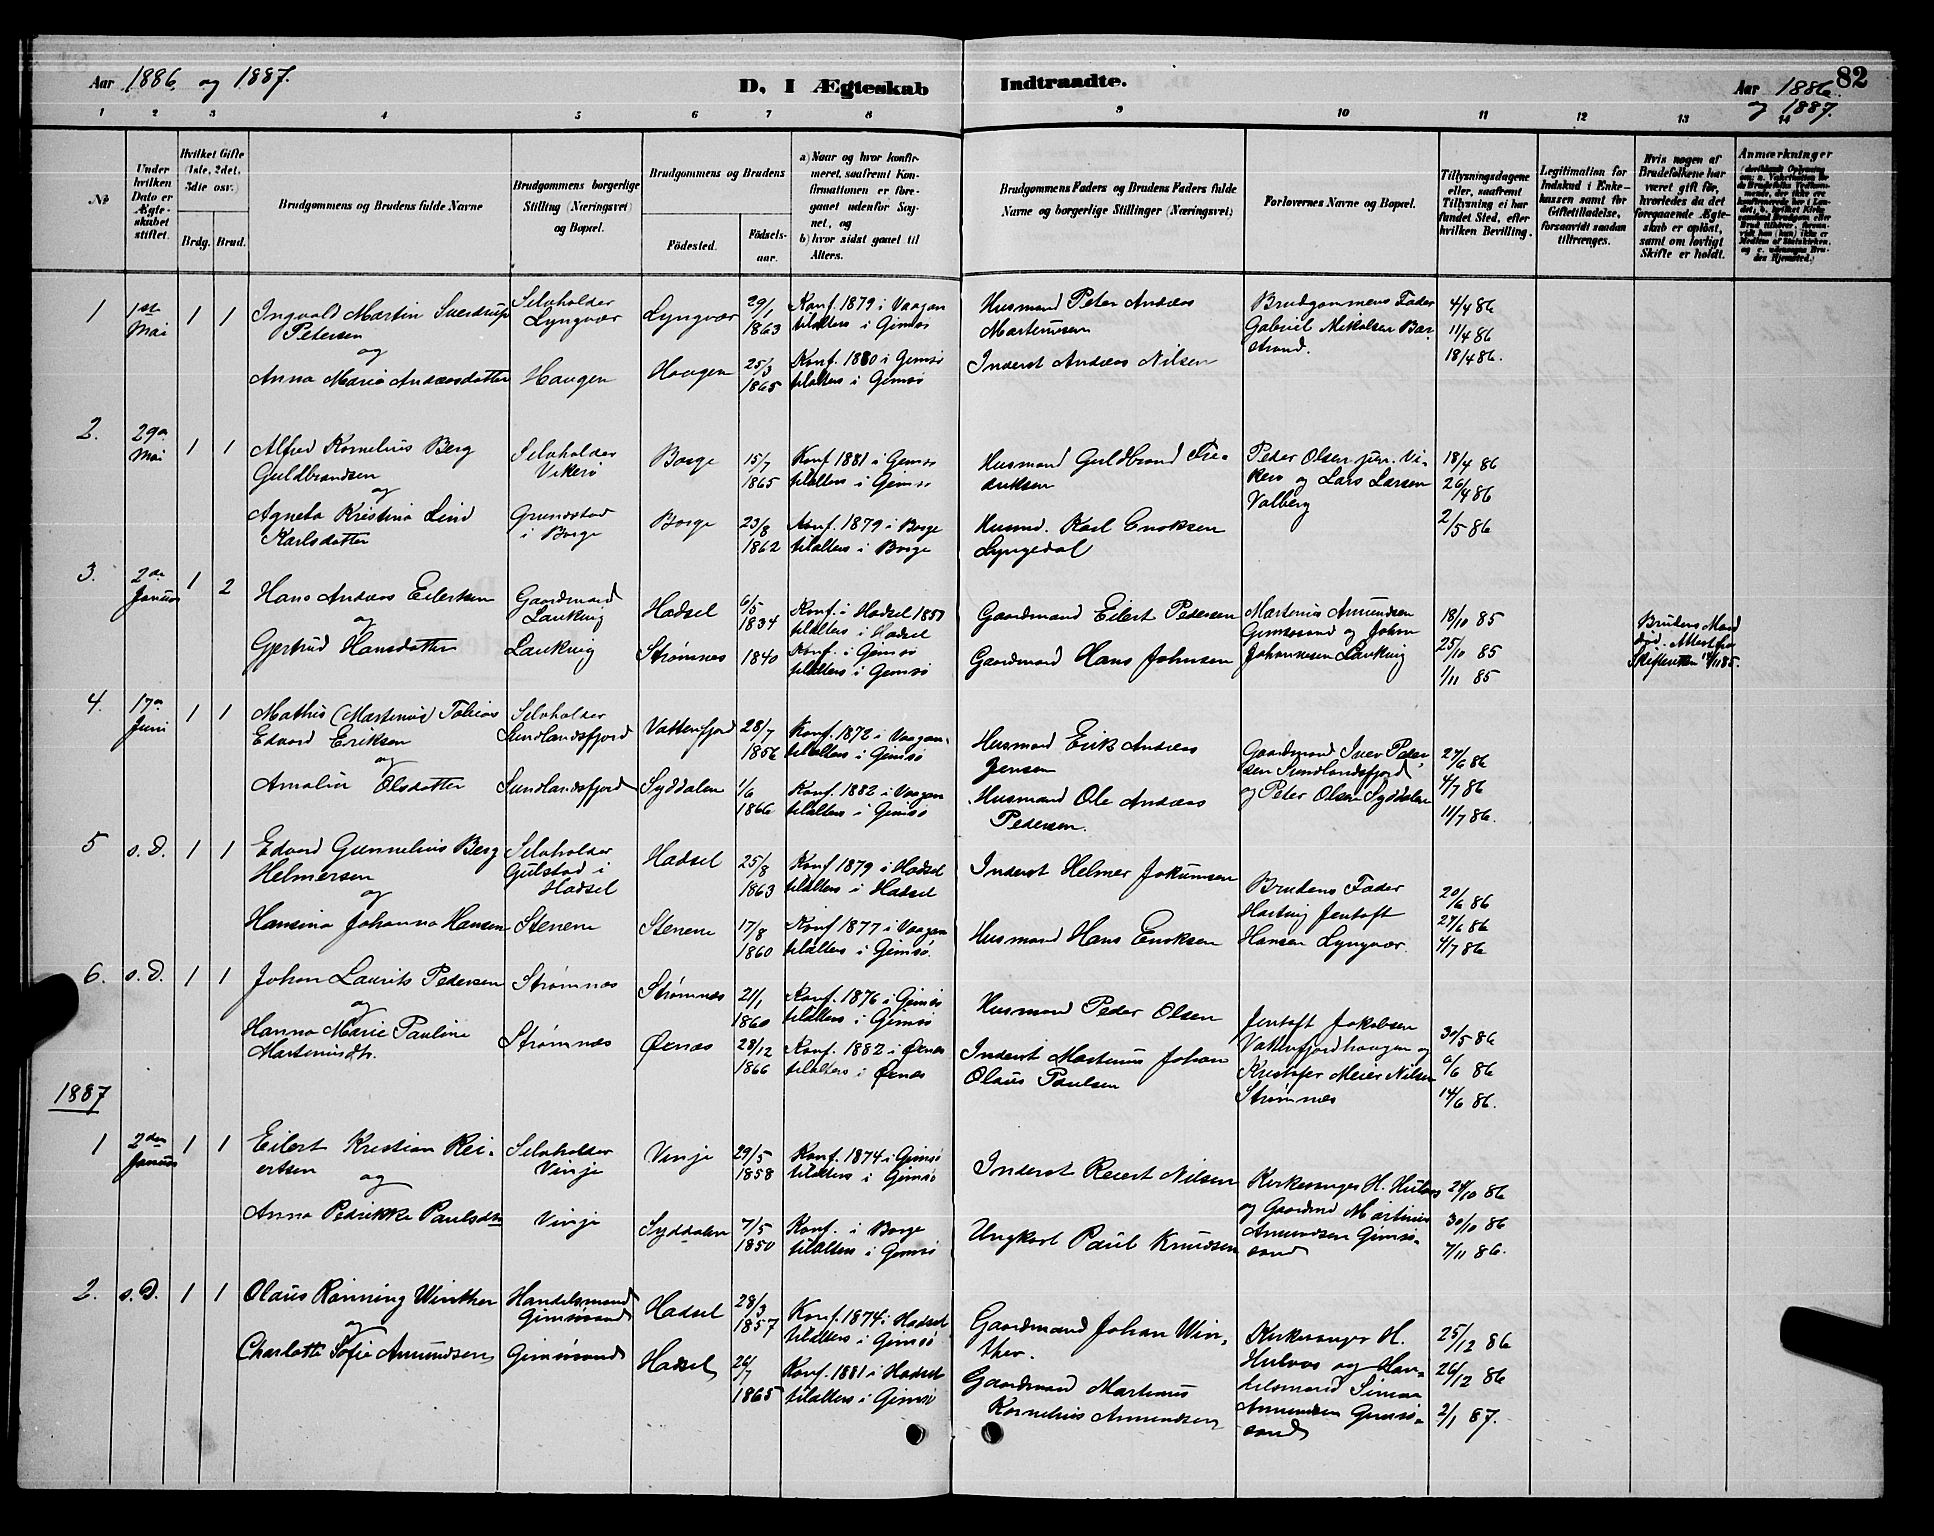 Aar 1886 og 1887.
D. I Ægteskab Indtraadte.
Aar 1886 og 1887.
82
1 2 3 4 5 6 7 8 9 10 11 12 13 14
No
Under hvilken Dato er Ægteskabet stiftet.
Hvilket Gifte (1ste, 2det, 3die osv.)
Brdg. Brud.
Brudgommens og Brudens fulde Navne
Brudgommens borgerlige Stilling (Næringsvei) og Bopæl.
Brudgommens og Brudens
Födested.
Födsels-aar.
a) Naar og hvor konfirmeret, saafremt Konfirmationen er foregaaet udenfor Sognet, og
b) hvor sidst gaaet til Alters.
Brudgommens Faders og Brudens Faders fulde Navne og borgerlige Stillinger (Næringsvei)
Forlovernes Navne og Bopæl.
Tillysningsdagene eller, saafremt Tillysning ei har fundet Sted, efter hvilken Bevilling.
Legitimation for Indskud i Enkekassen samt for Giftetilladelse, forsaavidt saadan tiltrænges.
Hvis nogen af Brudefolkene har været gift för, hvorledes da det foregaaende Ægteskab er oplöst, samt om lovligt Skifte er holdt.
Anmærkninger
1 1ste Mai 1 1
Ingvald Martin Sverdrup Petersen
og
Anna Maria Andreasdatter
Selvholder Lyngvær
Haugen
Lyngvær
Haugen
29/1 1863
25/3 1865
Konf. 1879 i Vaagan
tilalters i Gimsø
Konf. 1880 i Gimsø
tilalters i Gimsø
Husmand Peter Andreas Martinusen
Inderst Andreas Nilsen
Brudgommens Fader
Gabriel Mikalsen Barstrand.
4/4 86
11/4 86
18/4 86.
2. 29de Mai 1 1
Alfred Kornelius Berg Guldbrandsen
og
Agneta Kristina Lind Karlsdatter
Selvholder Vikerø
Grundstad i Borge
Borge
Borge
15/7 1865
23/8 1862
Konf. 1881 i Gimsø
tilalters i Gimsø
Konf. 1879 i Borge
tilalters i Borge
Husmand Guldbrand Fredriksen
Husmd. Karl Enoksen Lyngedal
Peder Olsen jun. Vikerø og Lars Larsen Valberg
18/4 86
26/4 86
2/5 86
3. 2den Januar 1 2
Hans Andreas Eilertsen
og
Gjertrud Hansdatter
Gaardmand Laukvig
Laukvig
Hadsel
Strømnes
6/5 1834
1840
Konf. i Hadsel 1851
tilalters i Hadsel
Konf. i Gimsø
tilalters i Gimsø
Gaardmand Eilert Pedersen
Gaardmand Hans Johnsen
Martinus Amundsen Gimsøsand og Johan Johannesen Laukvig
18/10 85
25/10 85
1/11 85
Brudens Mand død. Attest fra Skifteretten 14/11 85.
4. 17de Juni 1 1
Mathis (Martinus) Tobias Edvard Eriksen
og
Amalia Olsdatter
Selvholder Sundlandsfjord
Sundlandsfjord
Vatterfjord
Syddalen
28/7 1856
1/6 1866
Konf. 1872 i Vaagan.
tilalters i Gimsø
Konf. 1882 i Vaagan
tilalters i Gimsø
Husmand Erik Andreas Jensen
Husmand Ole Andreas Pedersen.
Gaardmand Iver Pedersen Sundlandsfjord
og Peter Olsen Syddalen
27/6 86
4/7 86
11/7 86.
5 s.D. 1 1
Edvard Gunnelius Berg Helmersen
og
Hansina Johanna Hansen
Selvholder Gulstad i Hadsel
Stenene
Hadsel
Stenene
25/8 1863
17/8 1860
Konf 1879 i Hadsel
tilalters i Hadsel
Konf 1877 i Vaagan
tilalters i Gimsø.
Inderst Helmer Jokumsen
Husmand Hans Enoksen
Brudens Fader
Hartvig Jentoft Hansen Lyngvær.
20/6 86
27/6 86
4/7 86
6. s.D. 1 1
Johan Laurits Pedersen
og
Hanna Marie Pauline Martinusdtr.
Strømnæs
Strømnæs
Strømnæs
Øxnæs
21/1 1860
28/12 1866
Konf. 1876 i Gimsø
tilalters i Gimsø
Konf. 1882 i Øxnæs
tilalters i Øxnæs
Husmand Peder Olsen
Inderst Martinus Johan Olaus Paulsen
Jentoft Jakobsen
Vatterfjordhaugen og
Kristofer Meier Nilsen
Strømnæs
30/5 86
6/6 86
14/6 86.
1887
1 2den Januar 1 1
Eilert Kristian Reiertsen
og
Anna Pedrikke Paulsdtr
Selvholder Vinje
Vinje
Vinje
Syddalen
29/5 1858
7/5 1850
Konf. 1874 i Gimsø
tilalters i Gimsø
Konf. i Borge
tilalters i Gimsø
Inderst Reiert Nilsen
Ungkarl Paul Knudsen
Kirkesanger H. Hulvas
og Gaardmd Martinus
Amundsen Gimsøsand
24/10 86
30/10 86
7/11 86.
2. s.D. 1 1
Olaus Rönning Winther
og
Charlotte Sofie Amundsen
Handelsmand Gimsøsand
Gimsøsand
Hadsel
Hadsel
28/3 1857
26/7 1865
Konf. 1874 i Hadsel
tilalters i Gimsø
Konf. 1881 i Hadsel
tilalters i Gimsø
Gaardmand Johan Winther.
Gaardmand Martinus Kornelius Amundsen
Kirkesanger H. Hulvas og Handelsmand Simon Amundsen Gimsøsand
25/12 86
26/12 86
2/1 87.